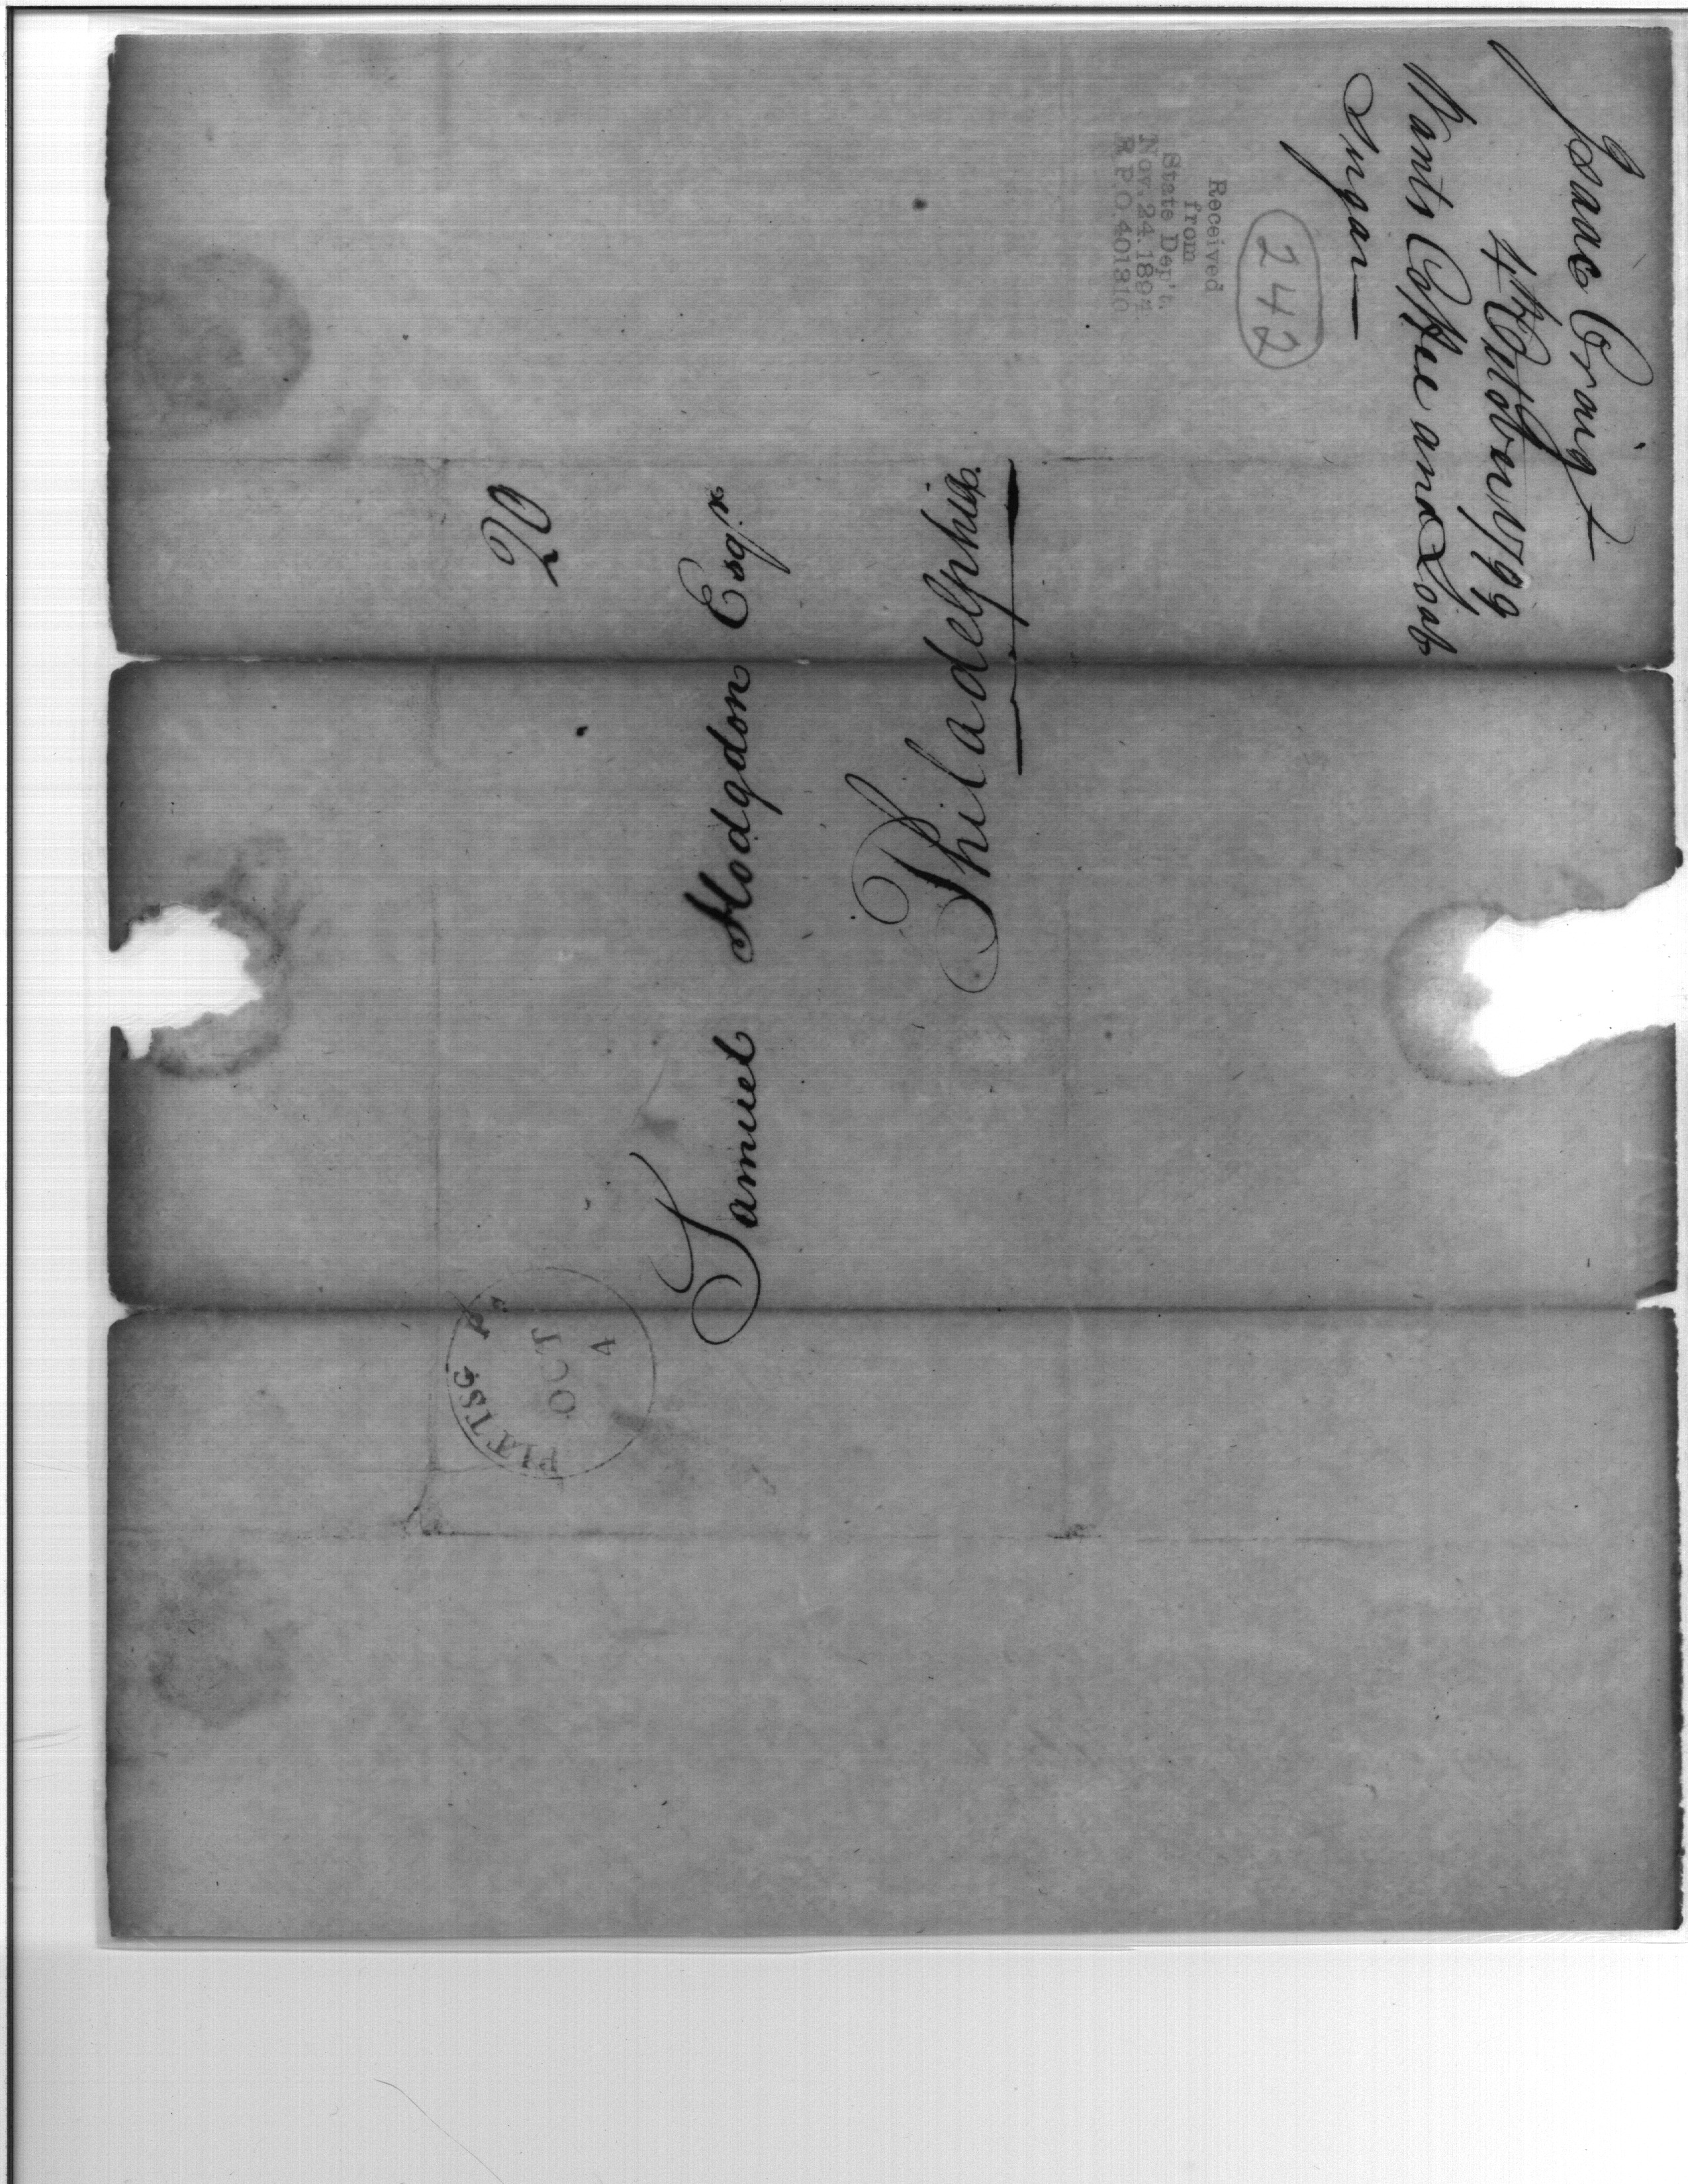 Isaac Craig
4th October 1799
Wants Coffee and Loaf
Sugar—
242
Received
from
State Dep't.
Nov. 24. 1894
R.P.O. 401310
20
Samuel Hodgdon Esqr.
Philadelphia.
PITTSG
OCT
4